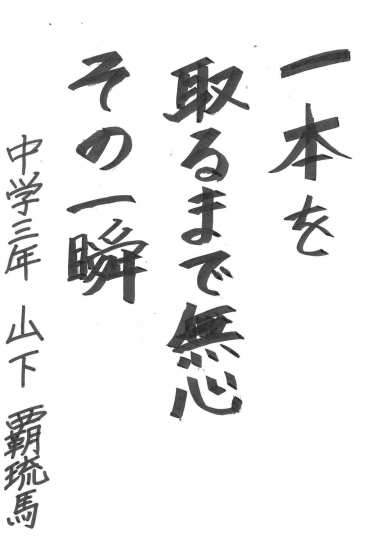 一本を
取るまで無心
その一瞬
中学三年 山下 覇琉馬